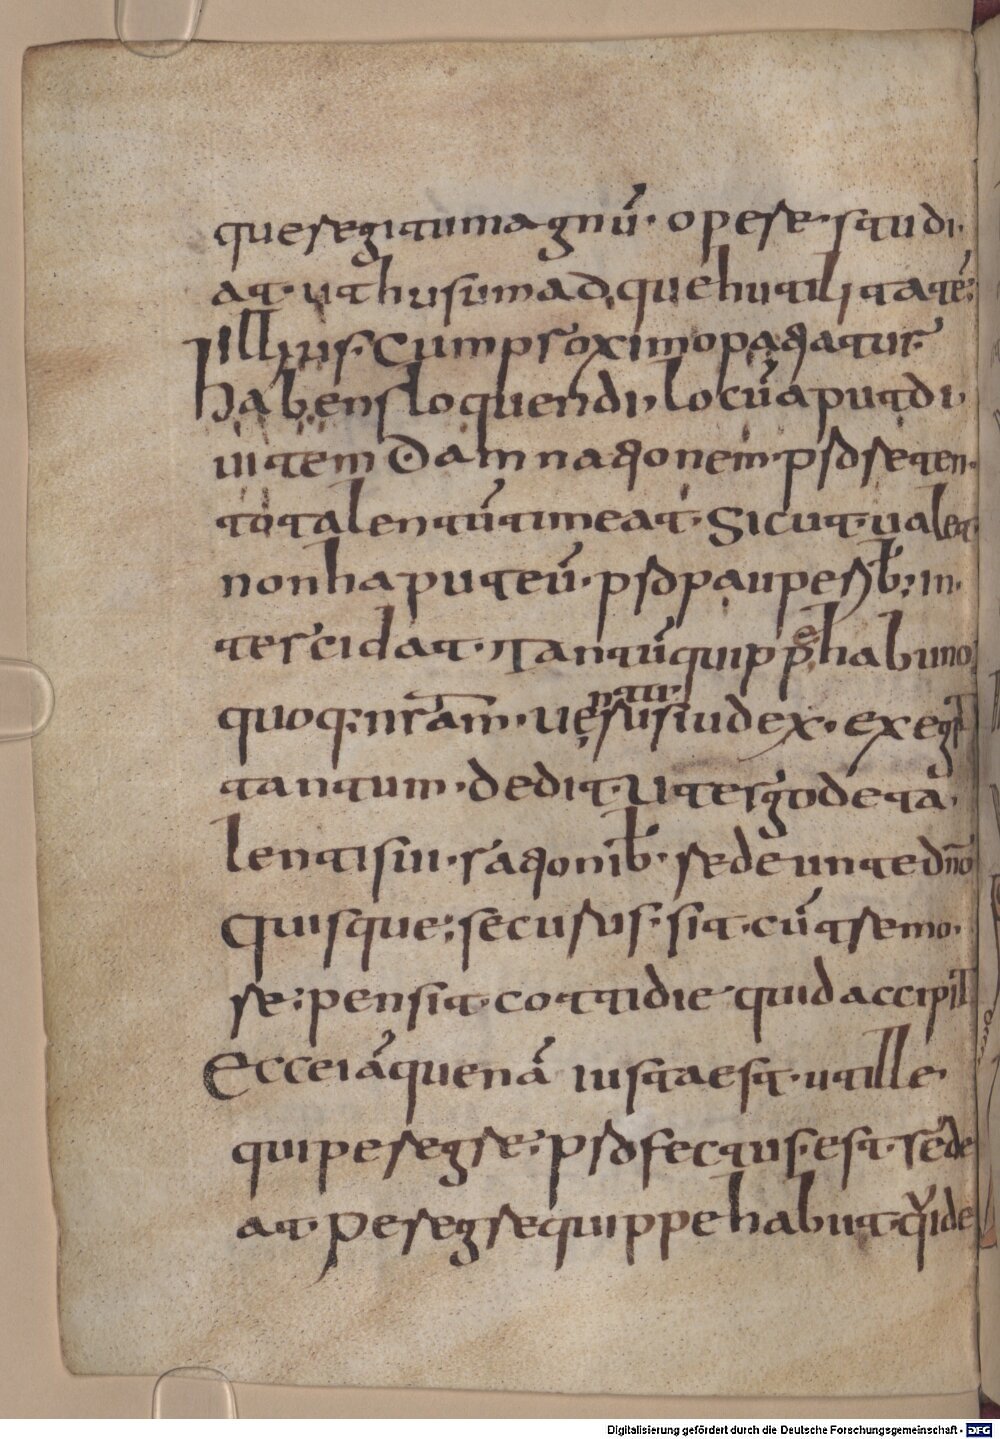 que regitur magnū· opere·studi·
at·ut husum ad quehutilitatē;
Illius·Cum proximo paꞇiatur
habens loquendi, locū aput di·
uitem Damnaꞇionem·pro reten·
to talentū timeat·Sicut·ualet
non haput eū·pro pauperib;·in·
tercidat·Tantū quippe hab uno
quoq; nrām·uenturus iudex·exegit
tantum·dedit Ut ergo de ta·
lenti sui·raꞇionib·redeunte dnō
Quisque; securus·sit·cū tremo·
re; pensit cottidie quid accipit
Ecce iā quenā iusta est·ut ille·
qui peregre; profectus·est·rede
at·peregre quippe habiit·qui de